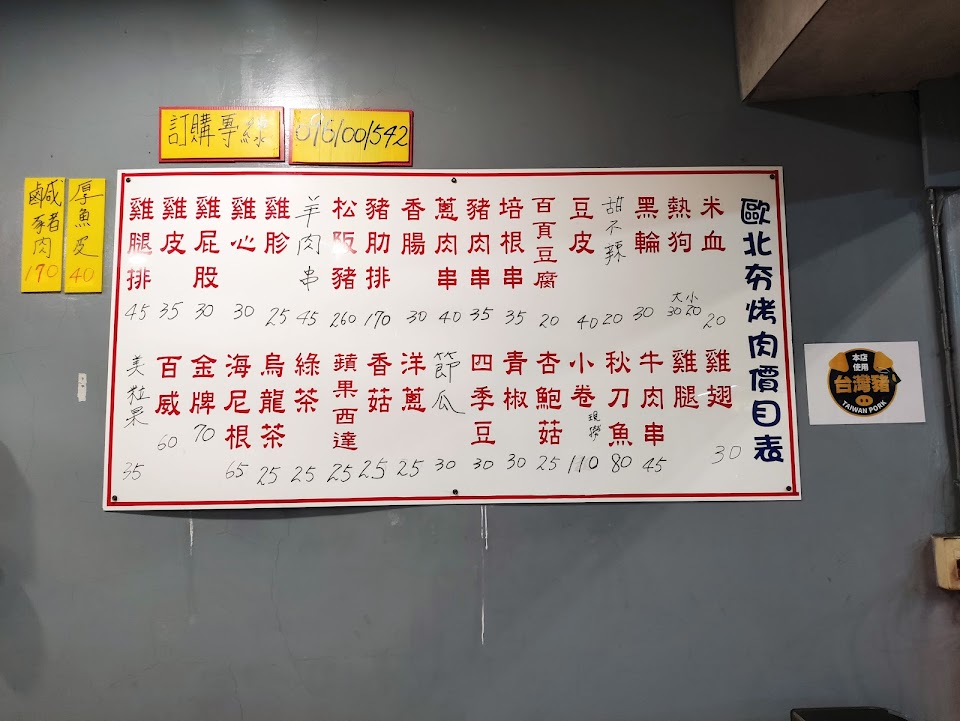 訂購專線
0976100542
歐北夯烤肉價目表
米血 20
熱狗 大30 小20
黑輪 30
甜不辣 20
豆皮 40
百頁豆腐 20
培根串 35
豬肉串 35
蔥肉串 40
香腸 30
豬肋排 170
松阪豬 260
羊肉串 45
雞胗 25
雞心 30
雞屁股 30
雞皮 35
雞腿排 45
雞翅 30
雞腿
牛肉串 45
秋刀魚 80
小卷 現撈 110
杏鮑菇 25
青椒 30
四季豆 30
節瓜 30
洋蔥 25
香菇 25
蘋果西達 25
綠茶 25
烏龍茶 25
海尼根 65
金牌 70
百威 60
美粒果 35
厚魚皮 40
鹹豬肉 170
本店
使用
台灣豬
TAIWAN PORK